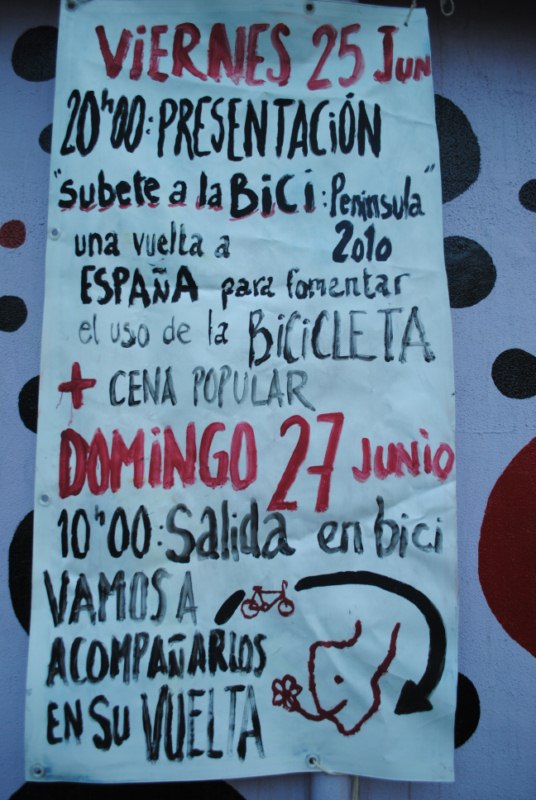 ViERNES 25 Jun
20h00: PRESENTACiÓN
"subete a la BiCi: Península
una vuelta a 2010"
ESPAÑA para fomentar
el uso de la BiCiCLETA
+ CENA POPULAR
DOMiNGO 27 JUNIO
10h00: Salida en bici
VAMOS A
ACOMPAÑARLOS
EN SU VUELTA